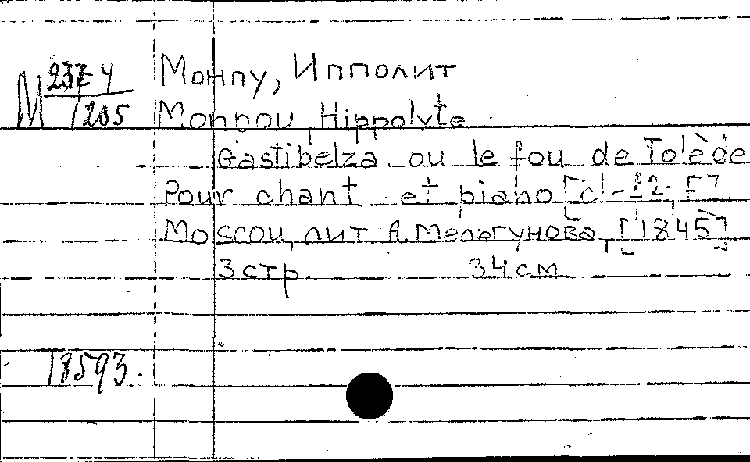 М 237-4/205
Монпу, Ипполит
Monpou, Hippolyte
Gastibelza ou le fou de Tolède
Pour chant et piano [c¹-f²; F]
Moscou, лит А. Мельгунова, [1845]
3 стр. 34 см
18593.